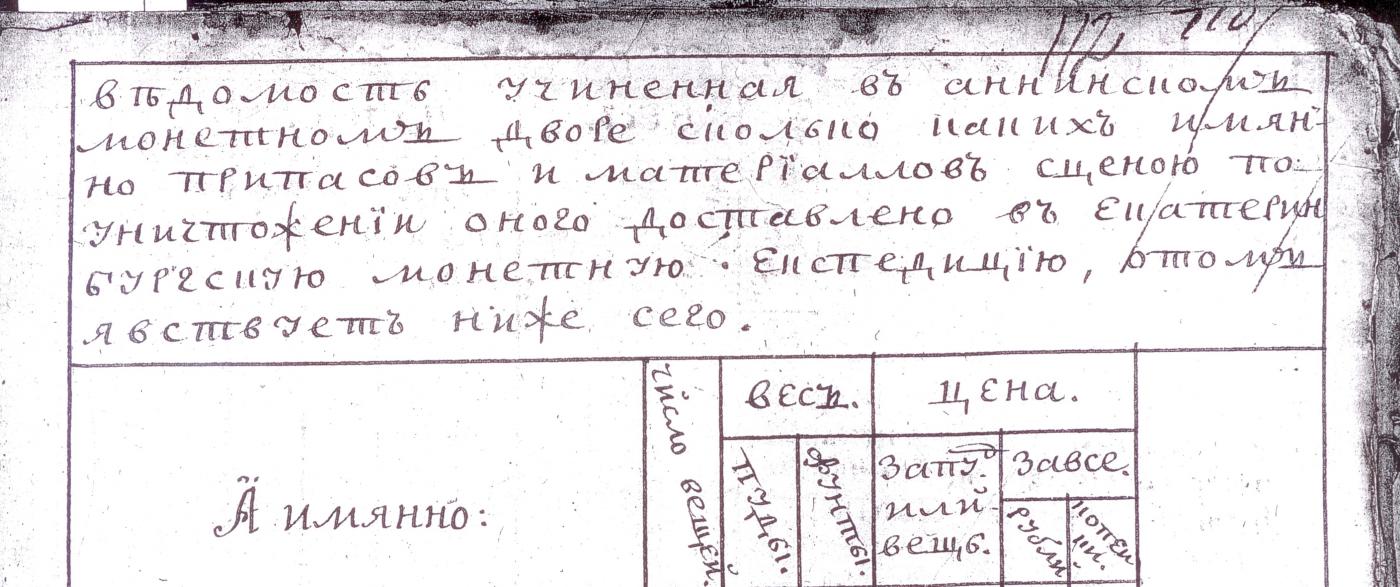 112, 110
вѣдомость учиненная въ аннинскомъ
монетномъ дворе сколько какихъ имян-
но припасовъ и матерїалловъ сценою по
уничтоженїи оного доставлено въ Екатерин
бургскую монетную Експедицїю, отомъ
явствуетъ ниже сего.
Число вещей.
весъ.
цена.
А имянно:
пуды.
фунты.
Запу.
или
вещь.
Завсе.
рубли
копеи
ки.